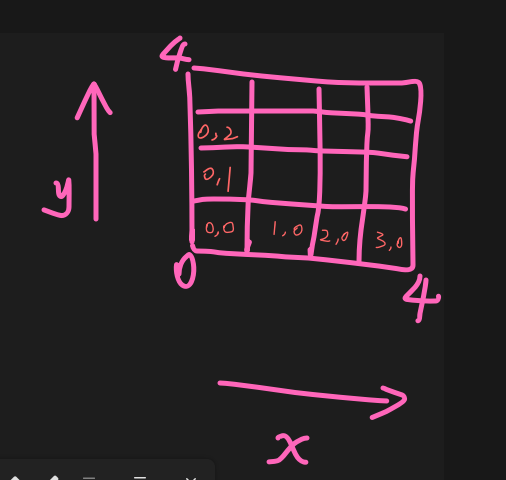 4
0,2
0,1
y
0,0 1,0 2,0 3,0
0 4
x